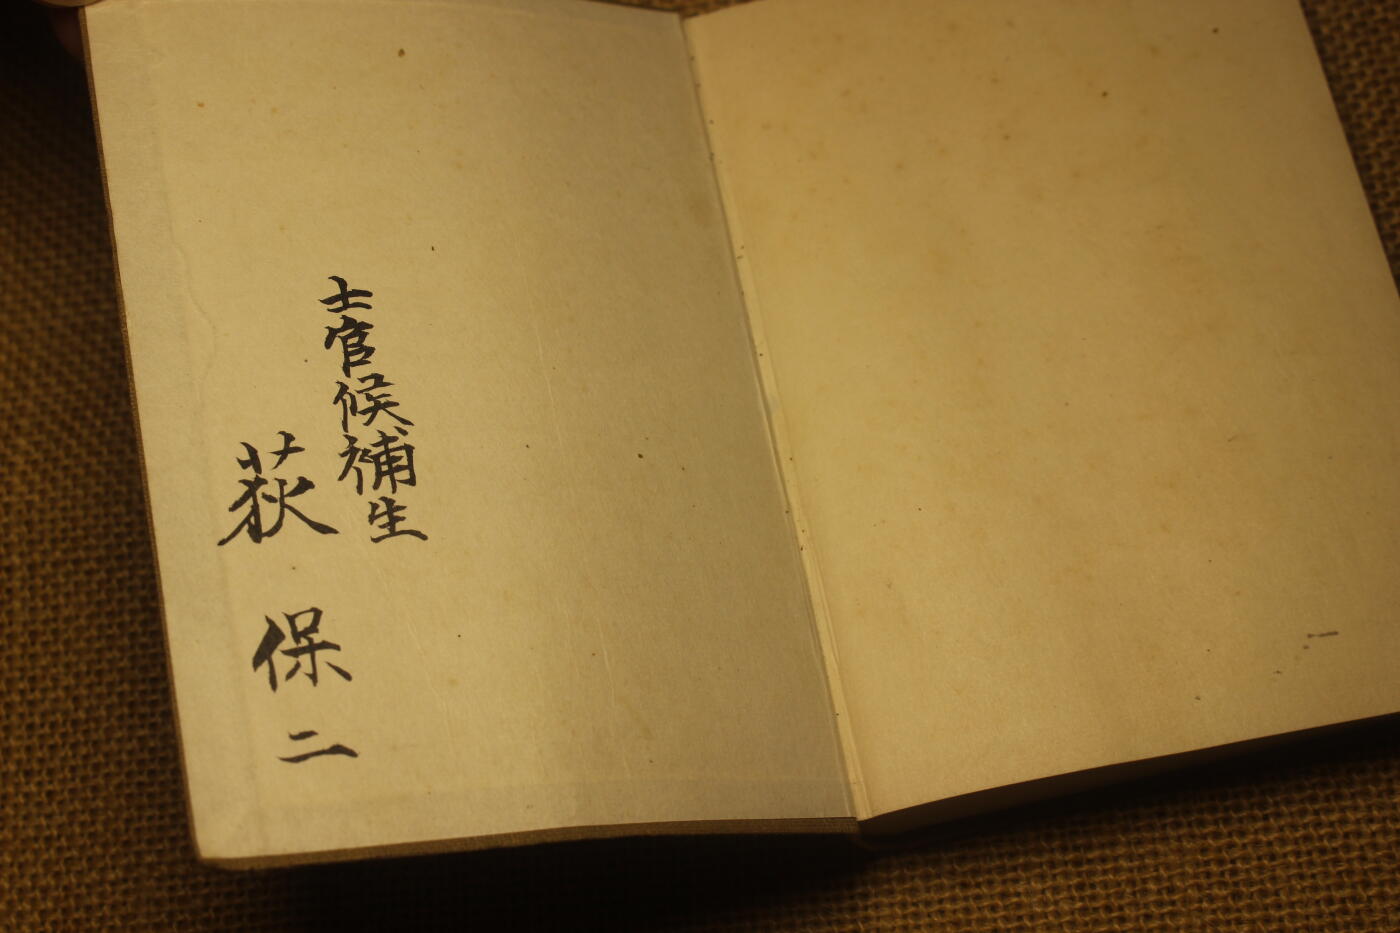 士官候補生
荻保二